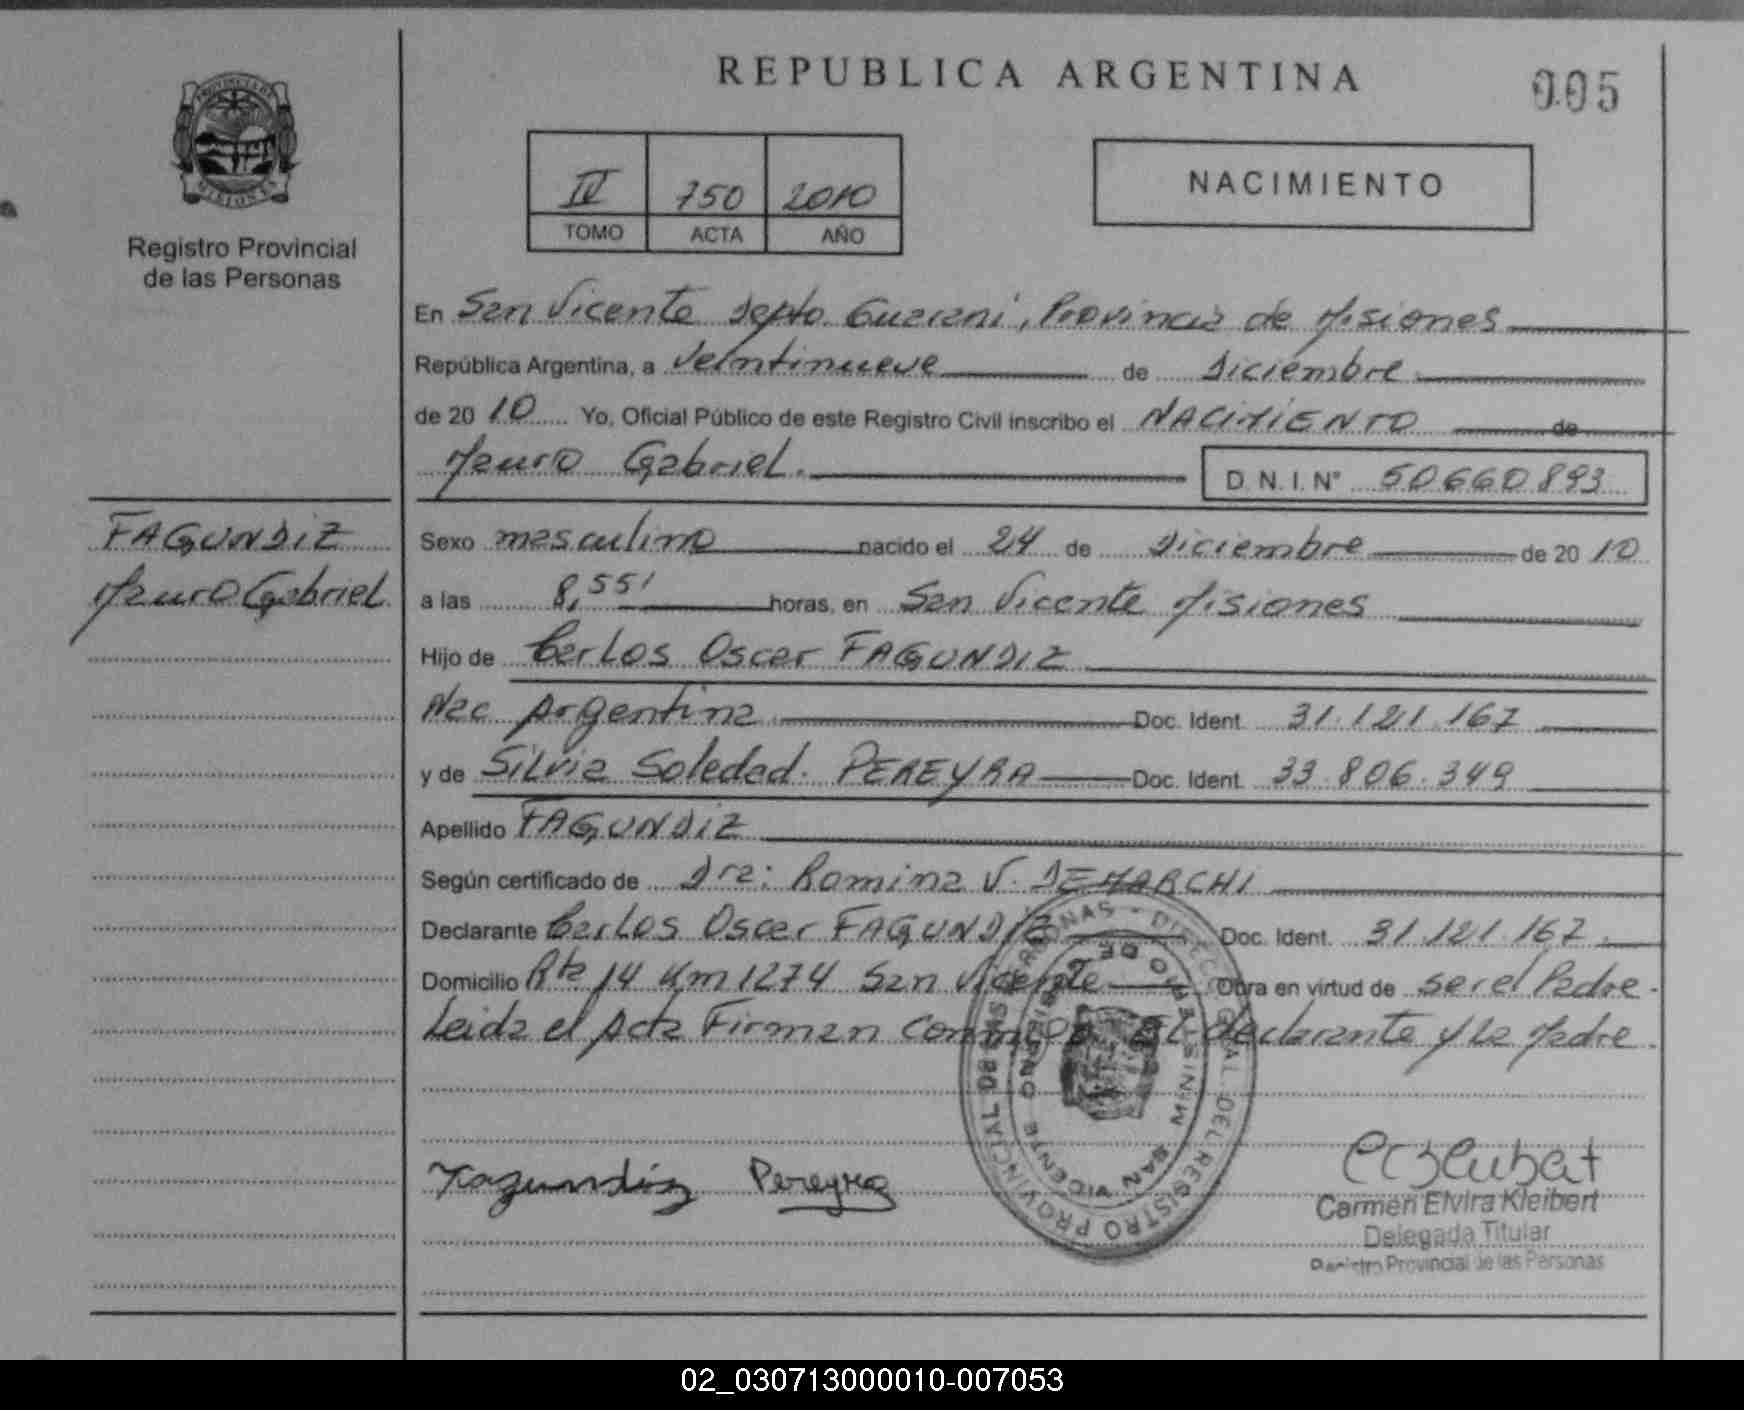 REPUBLICA ARGENTINA
005
IV 750 2010
TOMO ACTA AÑO
NACIMIENTO
PROVINCIA DE
MISIONES
Registro Provincial
de las Personas
En San Vicente Depto Guarani, Provincia de Misiones
República Argentina, a Veintinueve de Diciembre
de 20 10 Yo, Oficial Público de este Registro Civil inscribo el NACIMIENTO de
Mauro Gabriel. D.N.I. N° 50660893
FAGUNDIZ
Mauro Gabriel
Sexo masculino nacido el 24 de Diciembre de 20 10
a las 8,55' horas, en San Vicente Misiones
Hijo de Carlos Oscar FAGUNDIZ
Nac Argentina Doc. Ident. 31.121.167
y de Silvia Soledad. PEREYRA Doc. Ident. 33.806.349
Apellido FAGUNDIZ
Según certificado de Dra: Romina V. DEMARCHI
Declarante Carlos Oscar FAGUNDIZ Doc. Ident. 31.121.167
Domicilio Rta 14 Km 1274 San Vicente Obra en virtud de ser el Padre.
Leida el Acta Firman conmigo El declarante y la Madre.
Fagundiz Pereyra
REGISTRO PROVINCIAL DE LAS PERSONAS - DIRECCION GENERAL DEL
SAN VICENTE MISIONES
Carmen Elvira Kleibert
Delegada Titular
Registro Provincial de las Personas
02_030713000010-007053